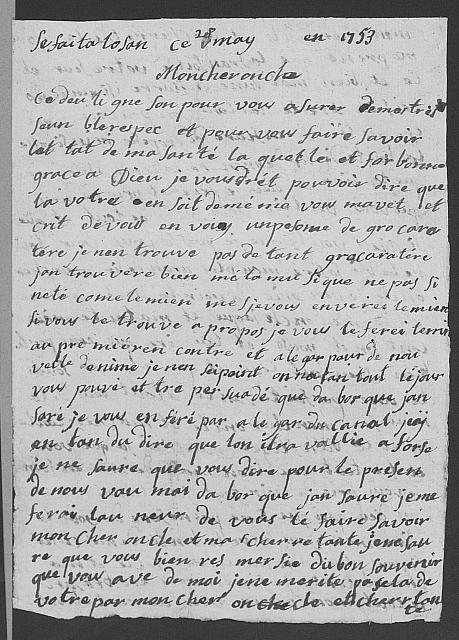 se fait a losan ce 28 may en 1753
Mon cher oncle
Ce deu li gne son pour vous a surer de mes tres
seun ble respec et pour vous faire savoir
let tat de ma santé la quelle et for bonne
grace a Dieu je voudret pouvoir dire que
la votre en soit de mé me vous mavet et
crit de vous en voiey un pesome de gro cara
tére je nen trouve pas de tant gro caratére
jan trouvere bien me la mu sique ne pas si
neté come le mien me sje vous enverei le mien
si vous le trouve a propos je vous le ferei tenir
au pre mié ren contre et a le gar pour de nou
velle de nime je nen sei point on na tan tout lé jour
vous pouvé et tre per suadé que da bor que jan
soré je vous en firé par a le gar du canal jeij
en tan du dire que lon i tra vallie a forse
je ne saure que vous dire pour le présen
de nous vau mai da bor que jan saure je me
ferai lau neur de vous lé faire savoir
mon cher oncle et ma cherre tante je ne sau
re que vous bien res mersie du bon souvenir
que vous ave de moi je ne merite pas cela de
votre par mon cher oncle et cherr tan
te